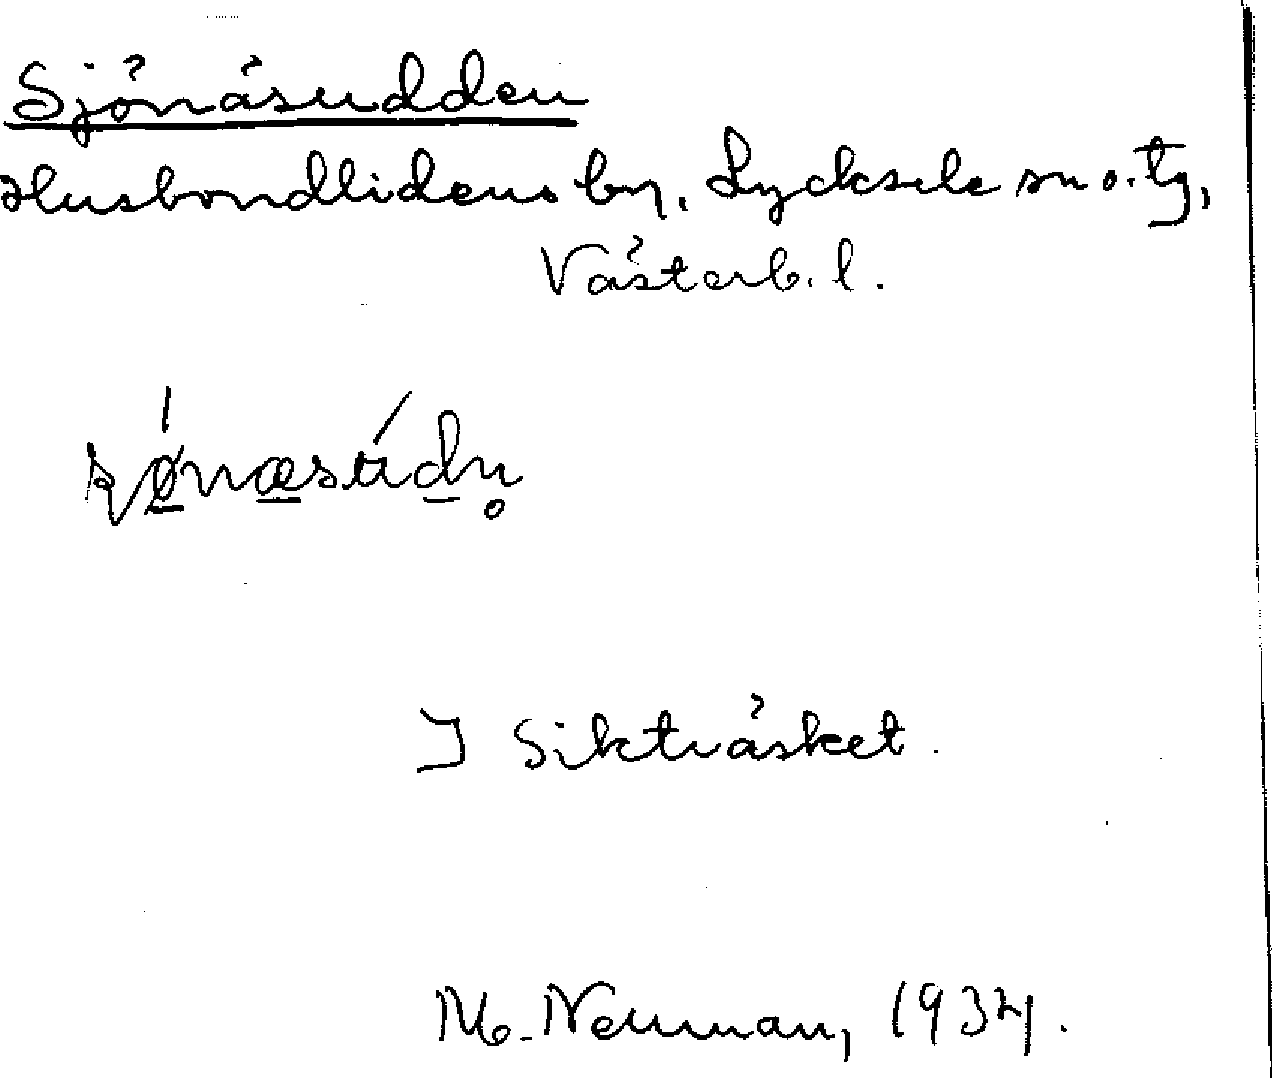 Sjönäsudden
Husbondlidens by, Lycksele sn o. tg,
Västerb. l.
I Sikträsket.
M. Neuman, 1934.